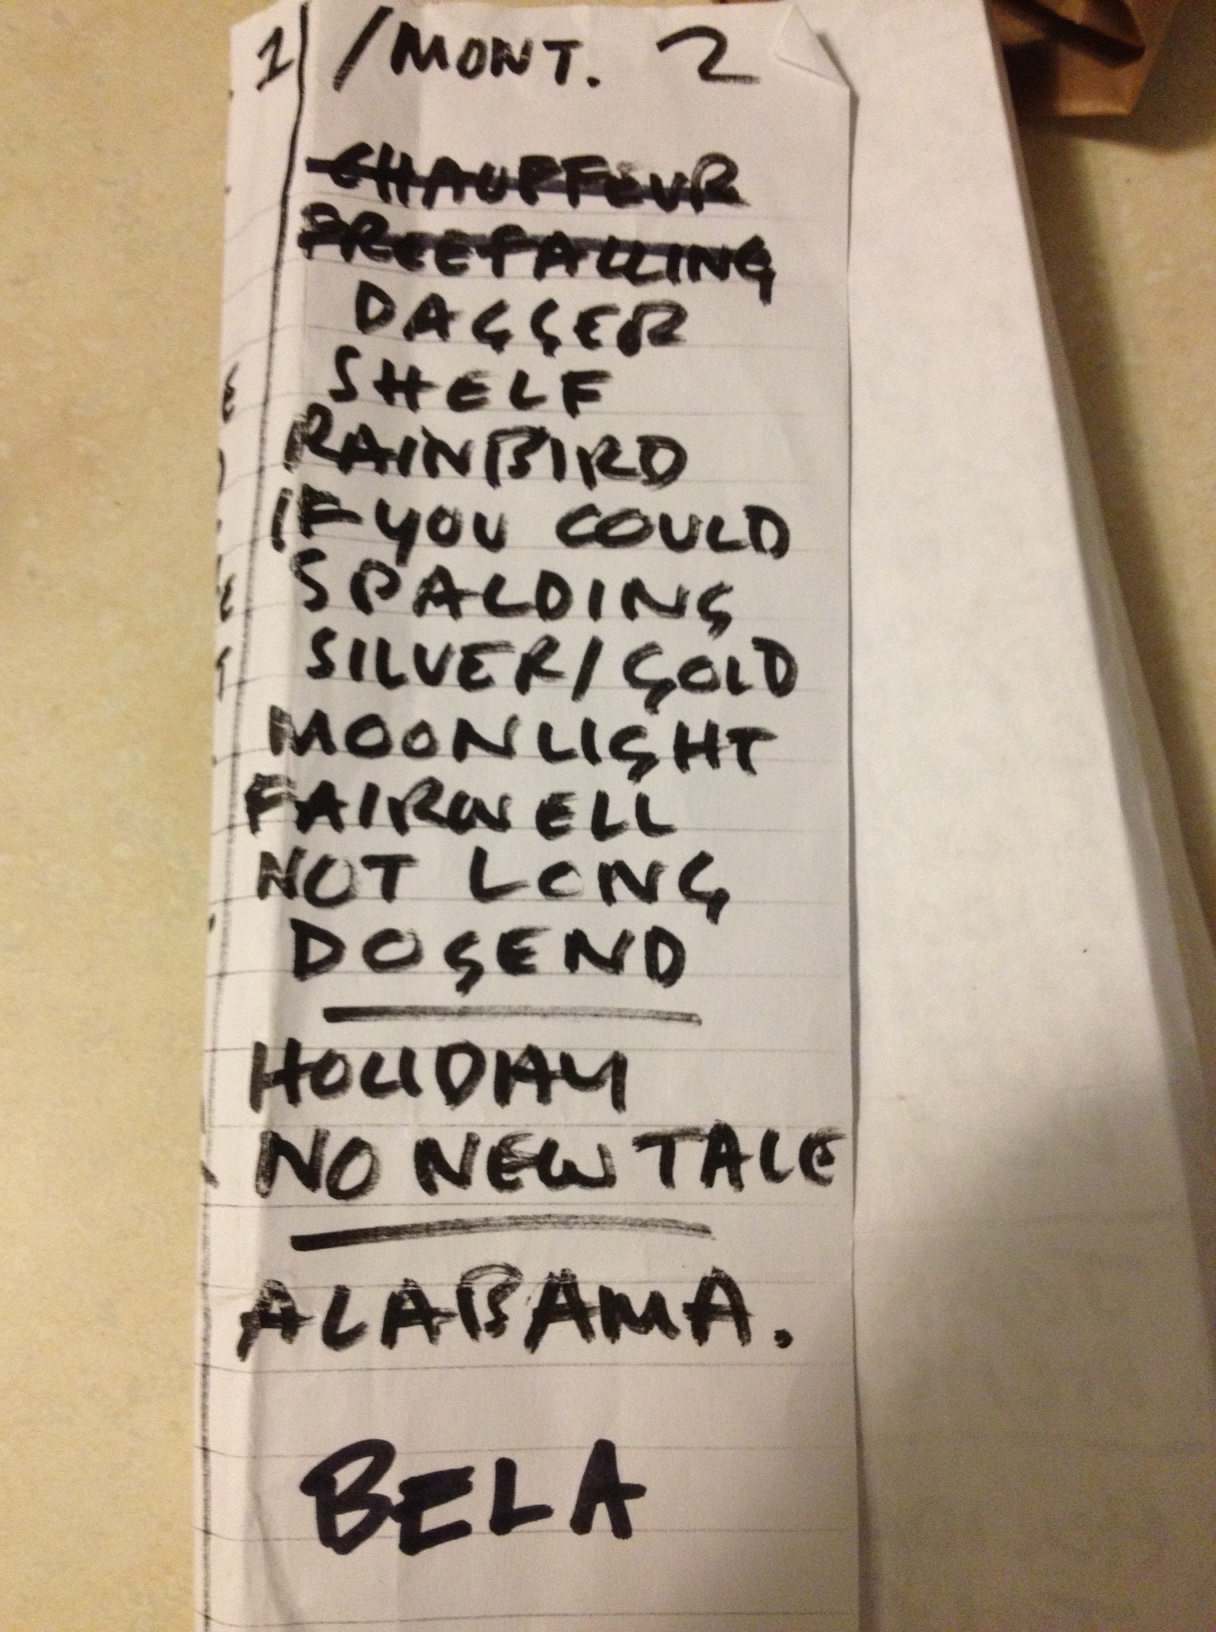 1 /MONT. 2
CHAUFFEUR
FREEFALLING
DAGGER
SHELF
RAINBIRD
IF YOU COULD
SPALDING
SILVER/GOLD
MOONLIGHT
FAIRWELL
NOT LONG
DOGEND
HOLIDAY
NO NEW TALE
ALABAMA.
BELA